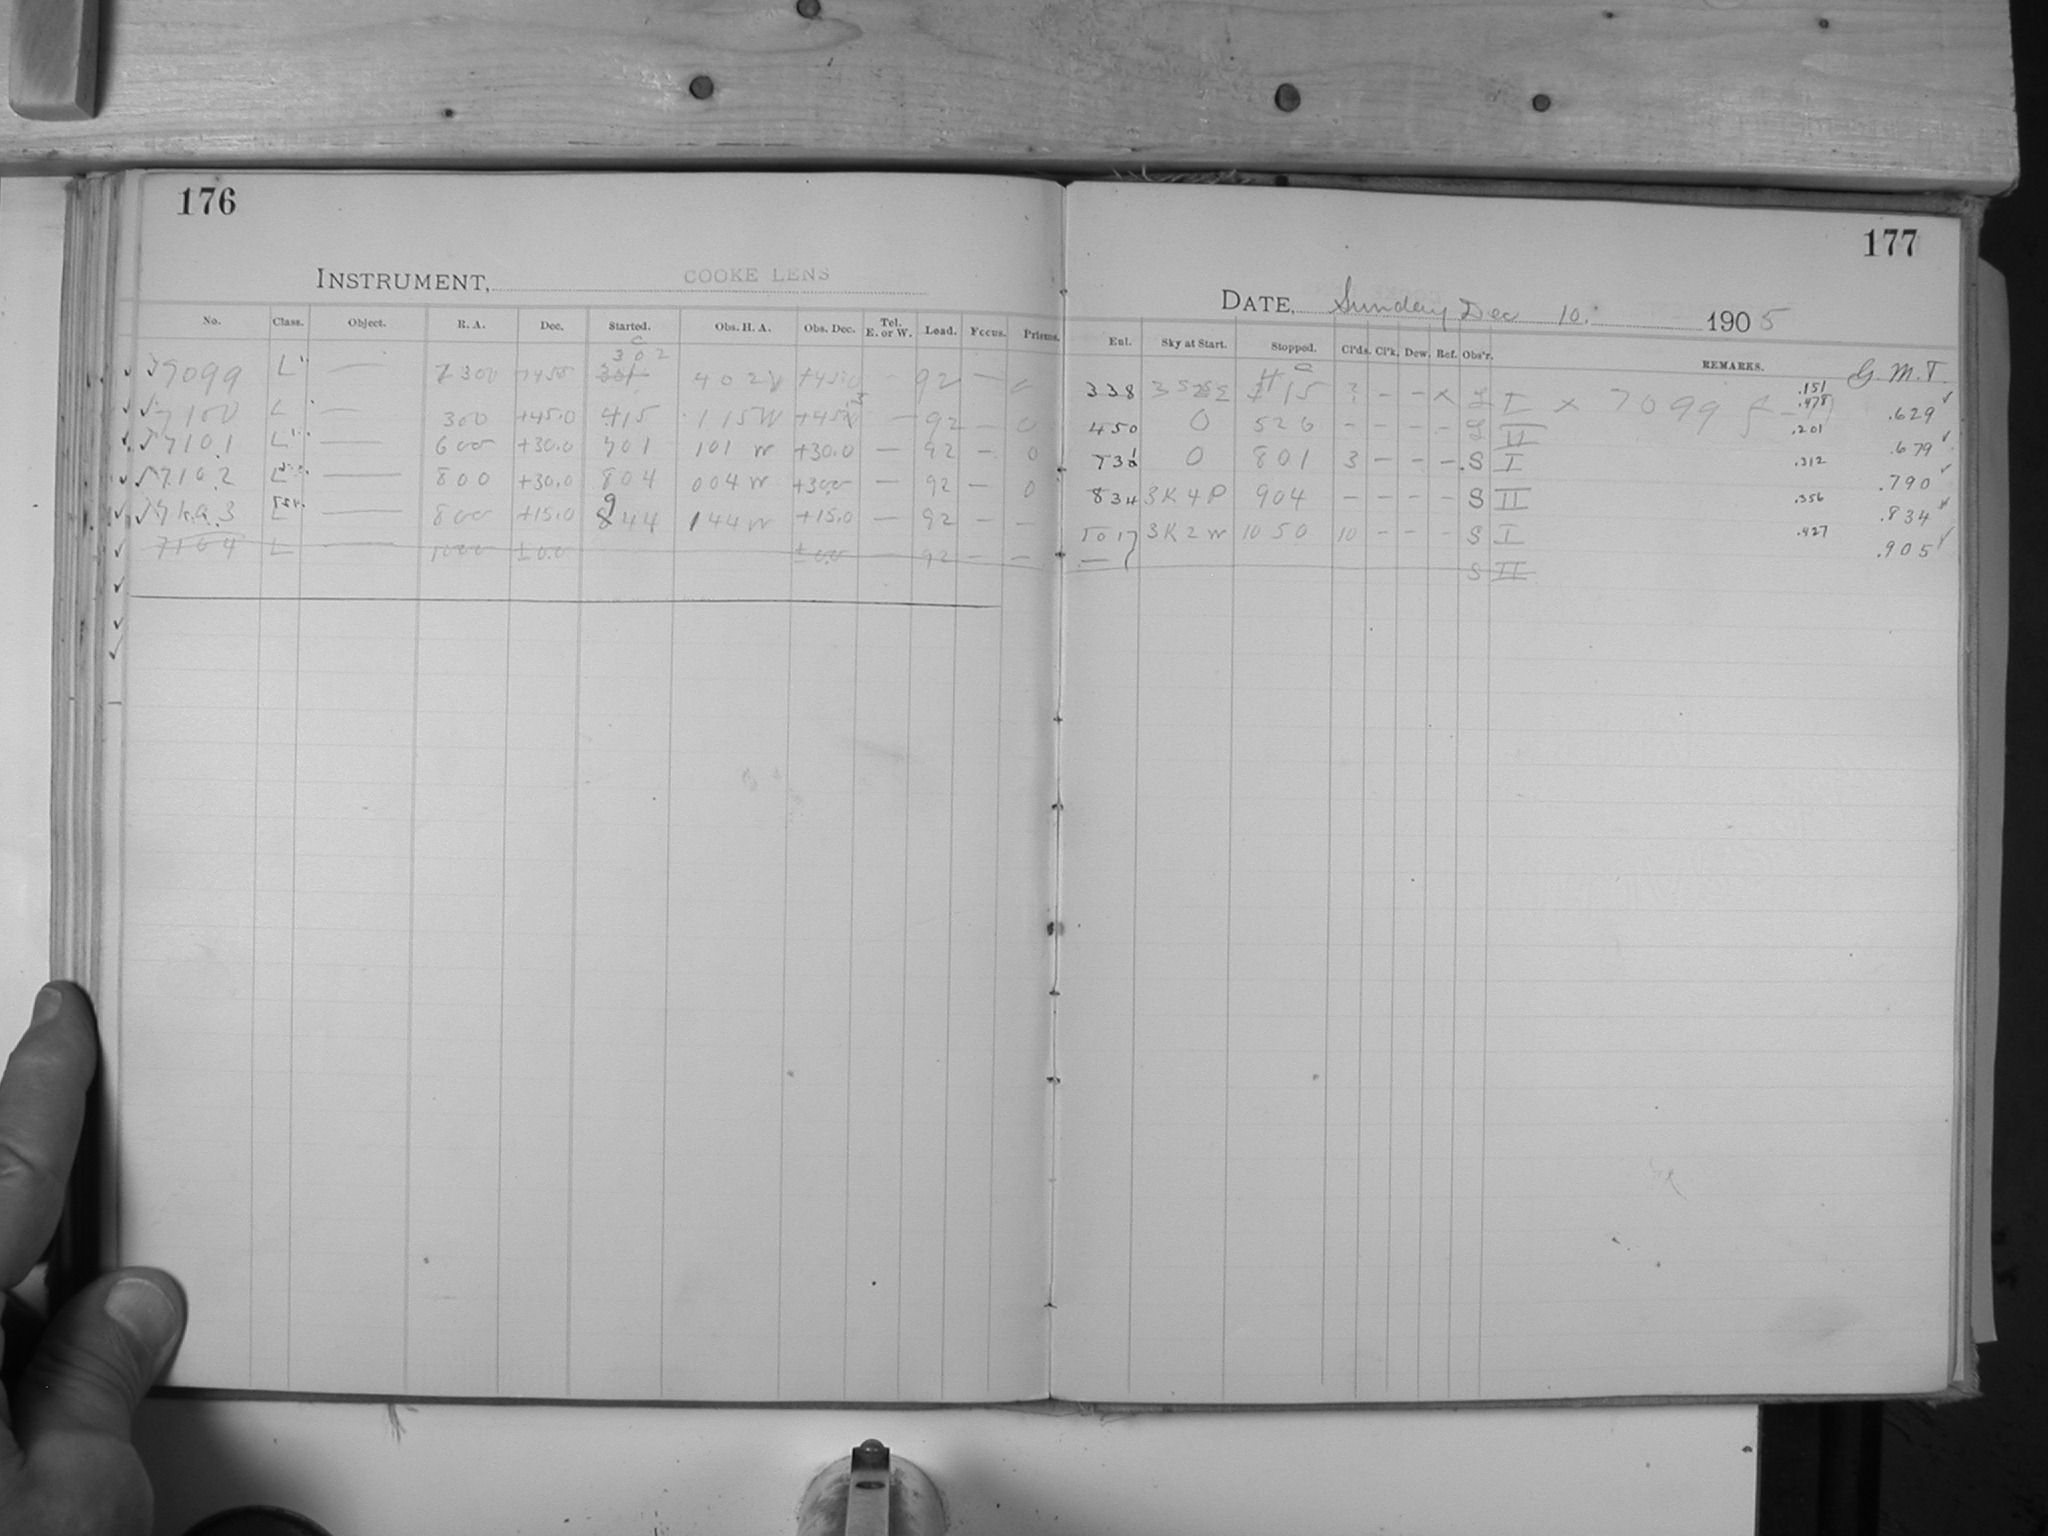 176
INSTRUMENT, COOKE LENS
No. Class. Object. R. A. Dec. Started. Obs. H. A. Obs. Dec. Tel. E. or W. Lead. Focus. Prisms.
7099 L — 300 +45.0 302 402 W +45.0 — 92 —
7100 L — 300 +45.0 415 115 W — 92 — 0
7101 L — 600 +30.0 701 101 W +30.0 — 92 — 0
7102 L — 800 +30.0 804 004 W +30.0 — 92 — 0
L — 800 +15.0 944 144 W +15.0 — 92 — —
7104 L — 1000 ±0.0 ±0.0 — 92 — —
177
DATE, Sunday Dec 10. 1905
Enl. Sky at Start. Stopped. Cl'ds. Cl'k. Dew. Ref. Obs'r. REMARKS. G. M. T.
338 415 — — × I × 7099 .151 .629
450 0 520 — — — — II .201 .679
0 801 3 — — — S I .312 .790
834 3K4P 904 — — — — S II .356 .834
1017 3K2W 1050 10 — — — S I .427 .905
— S II